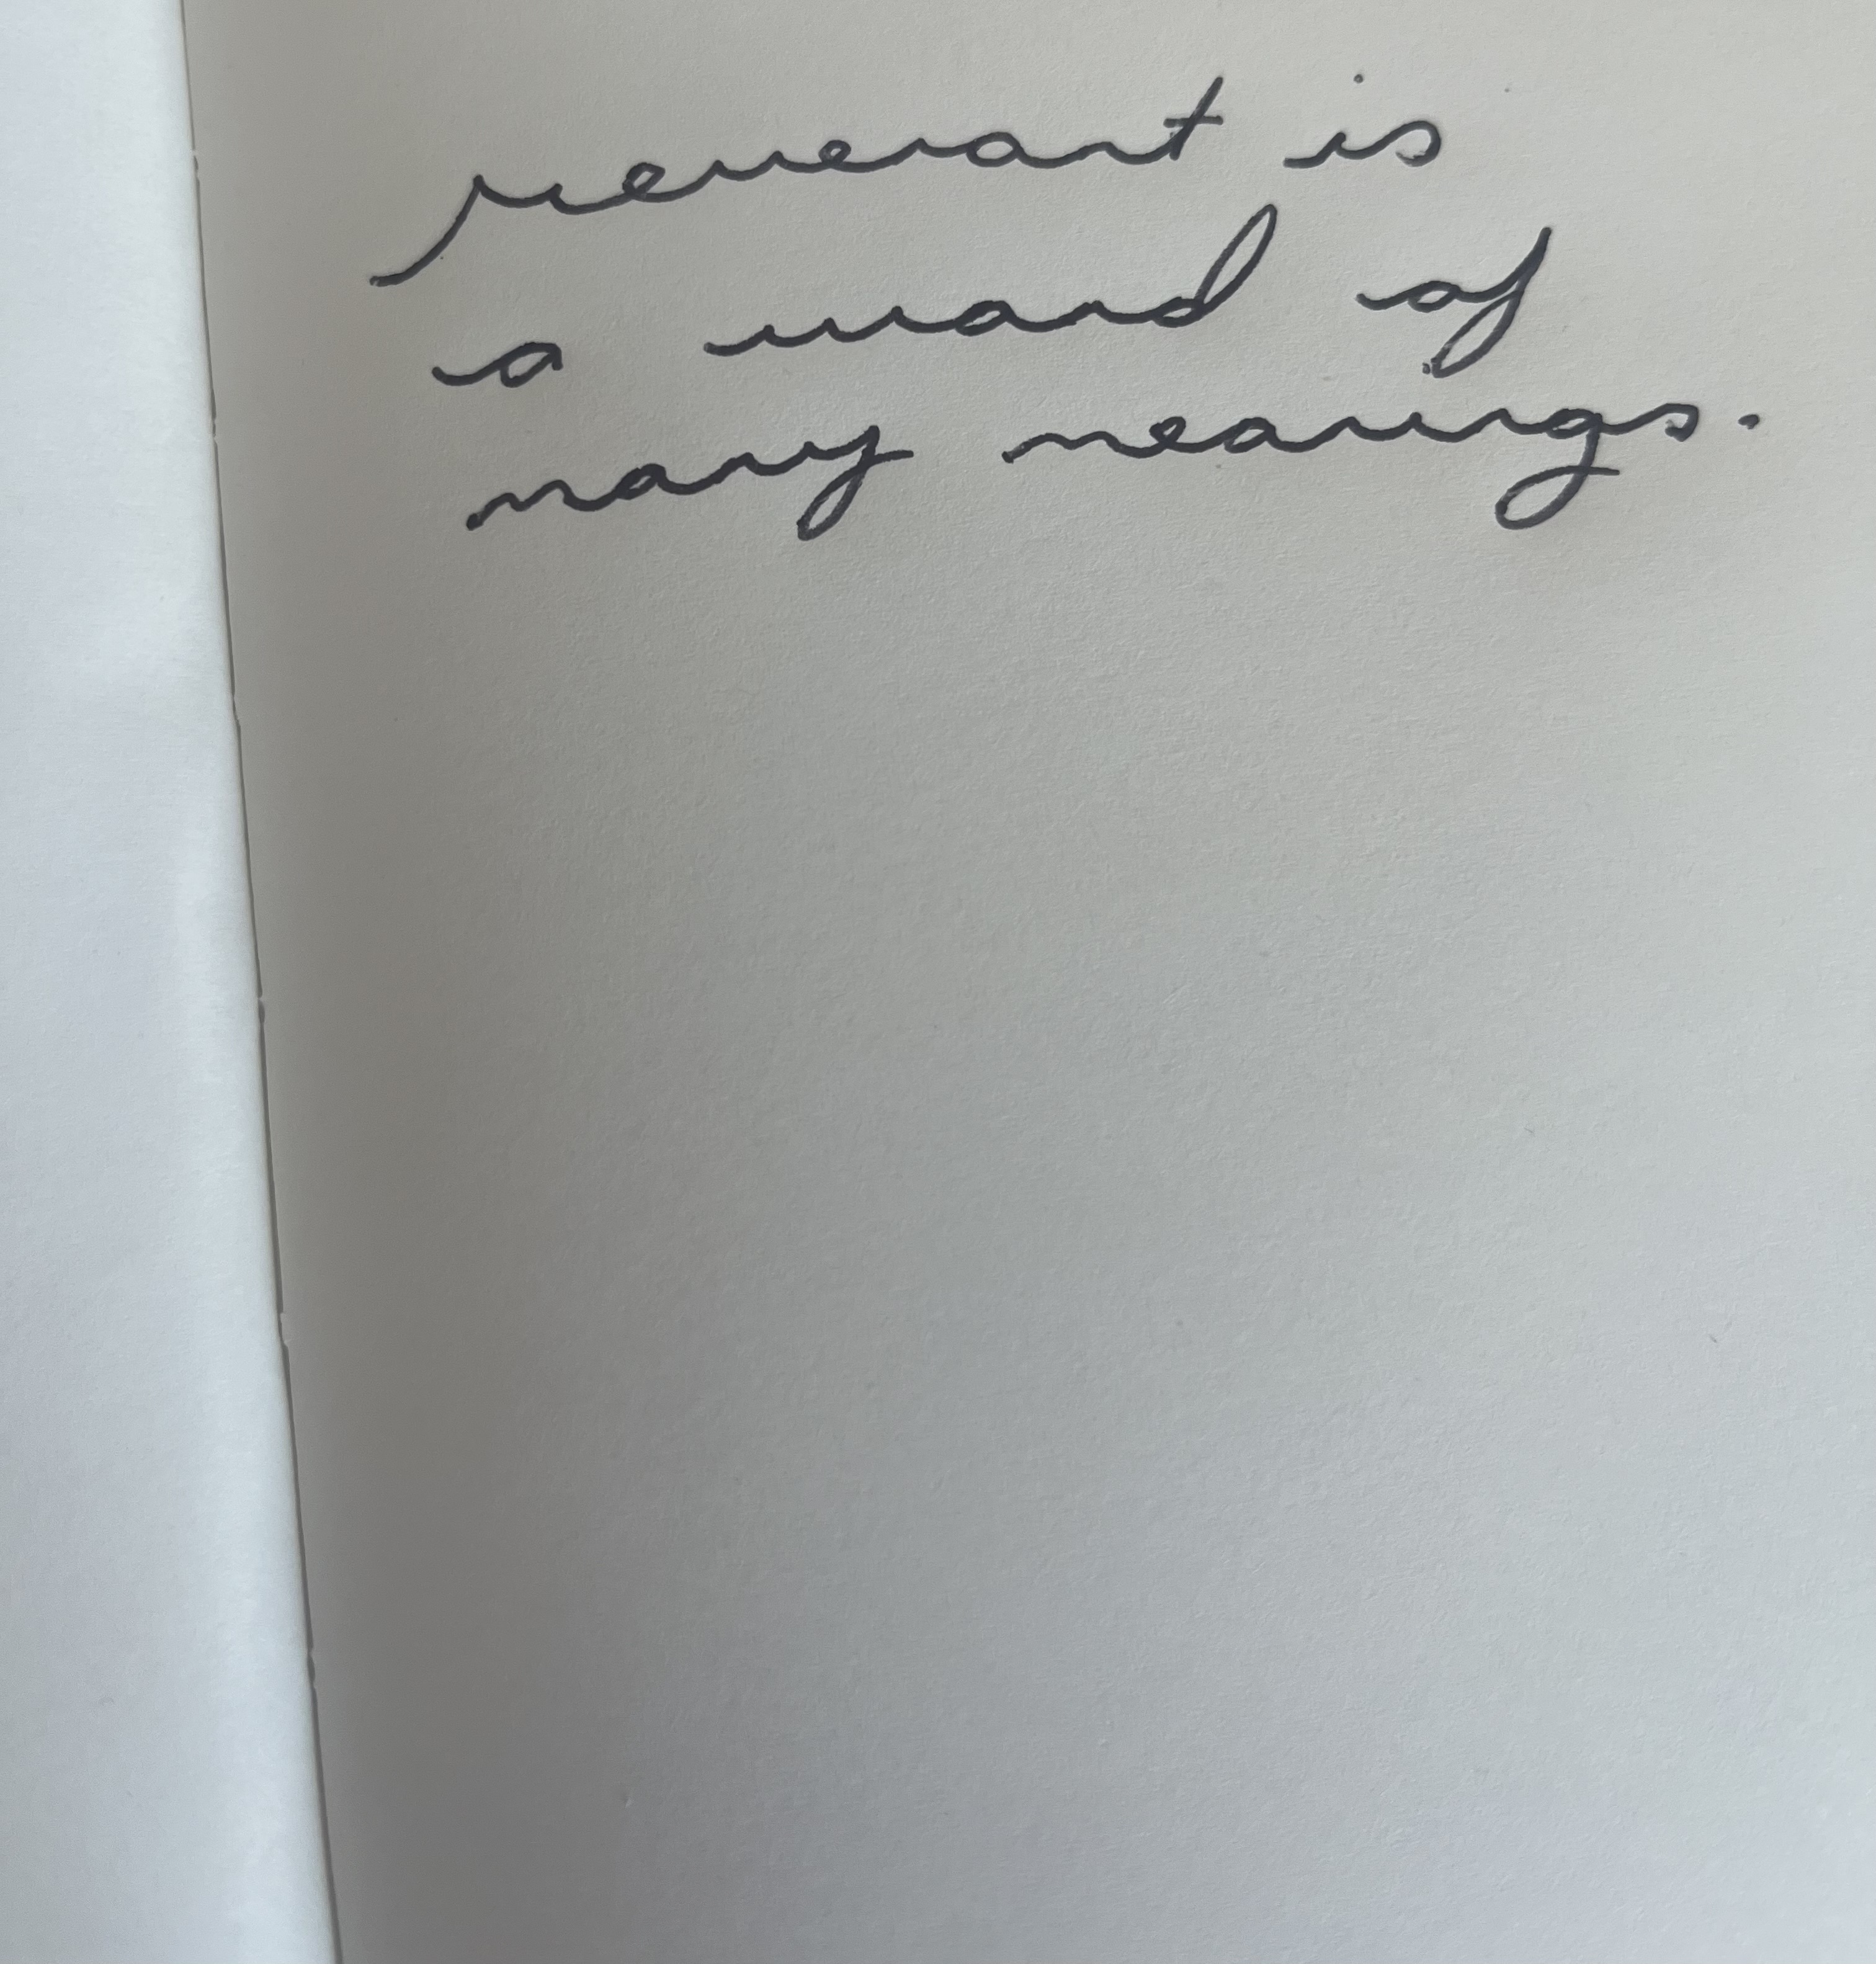 revenant is
a word of
many meanings.